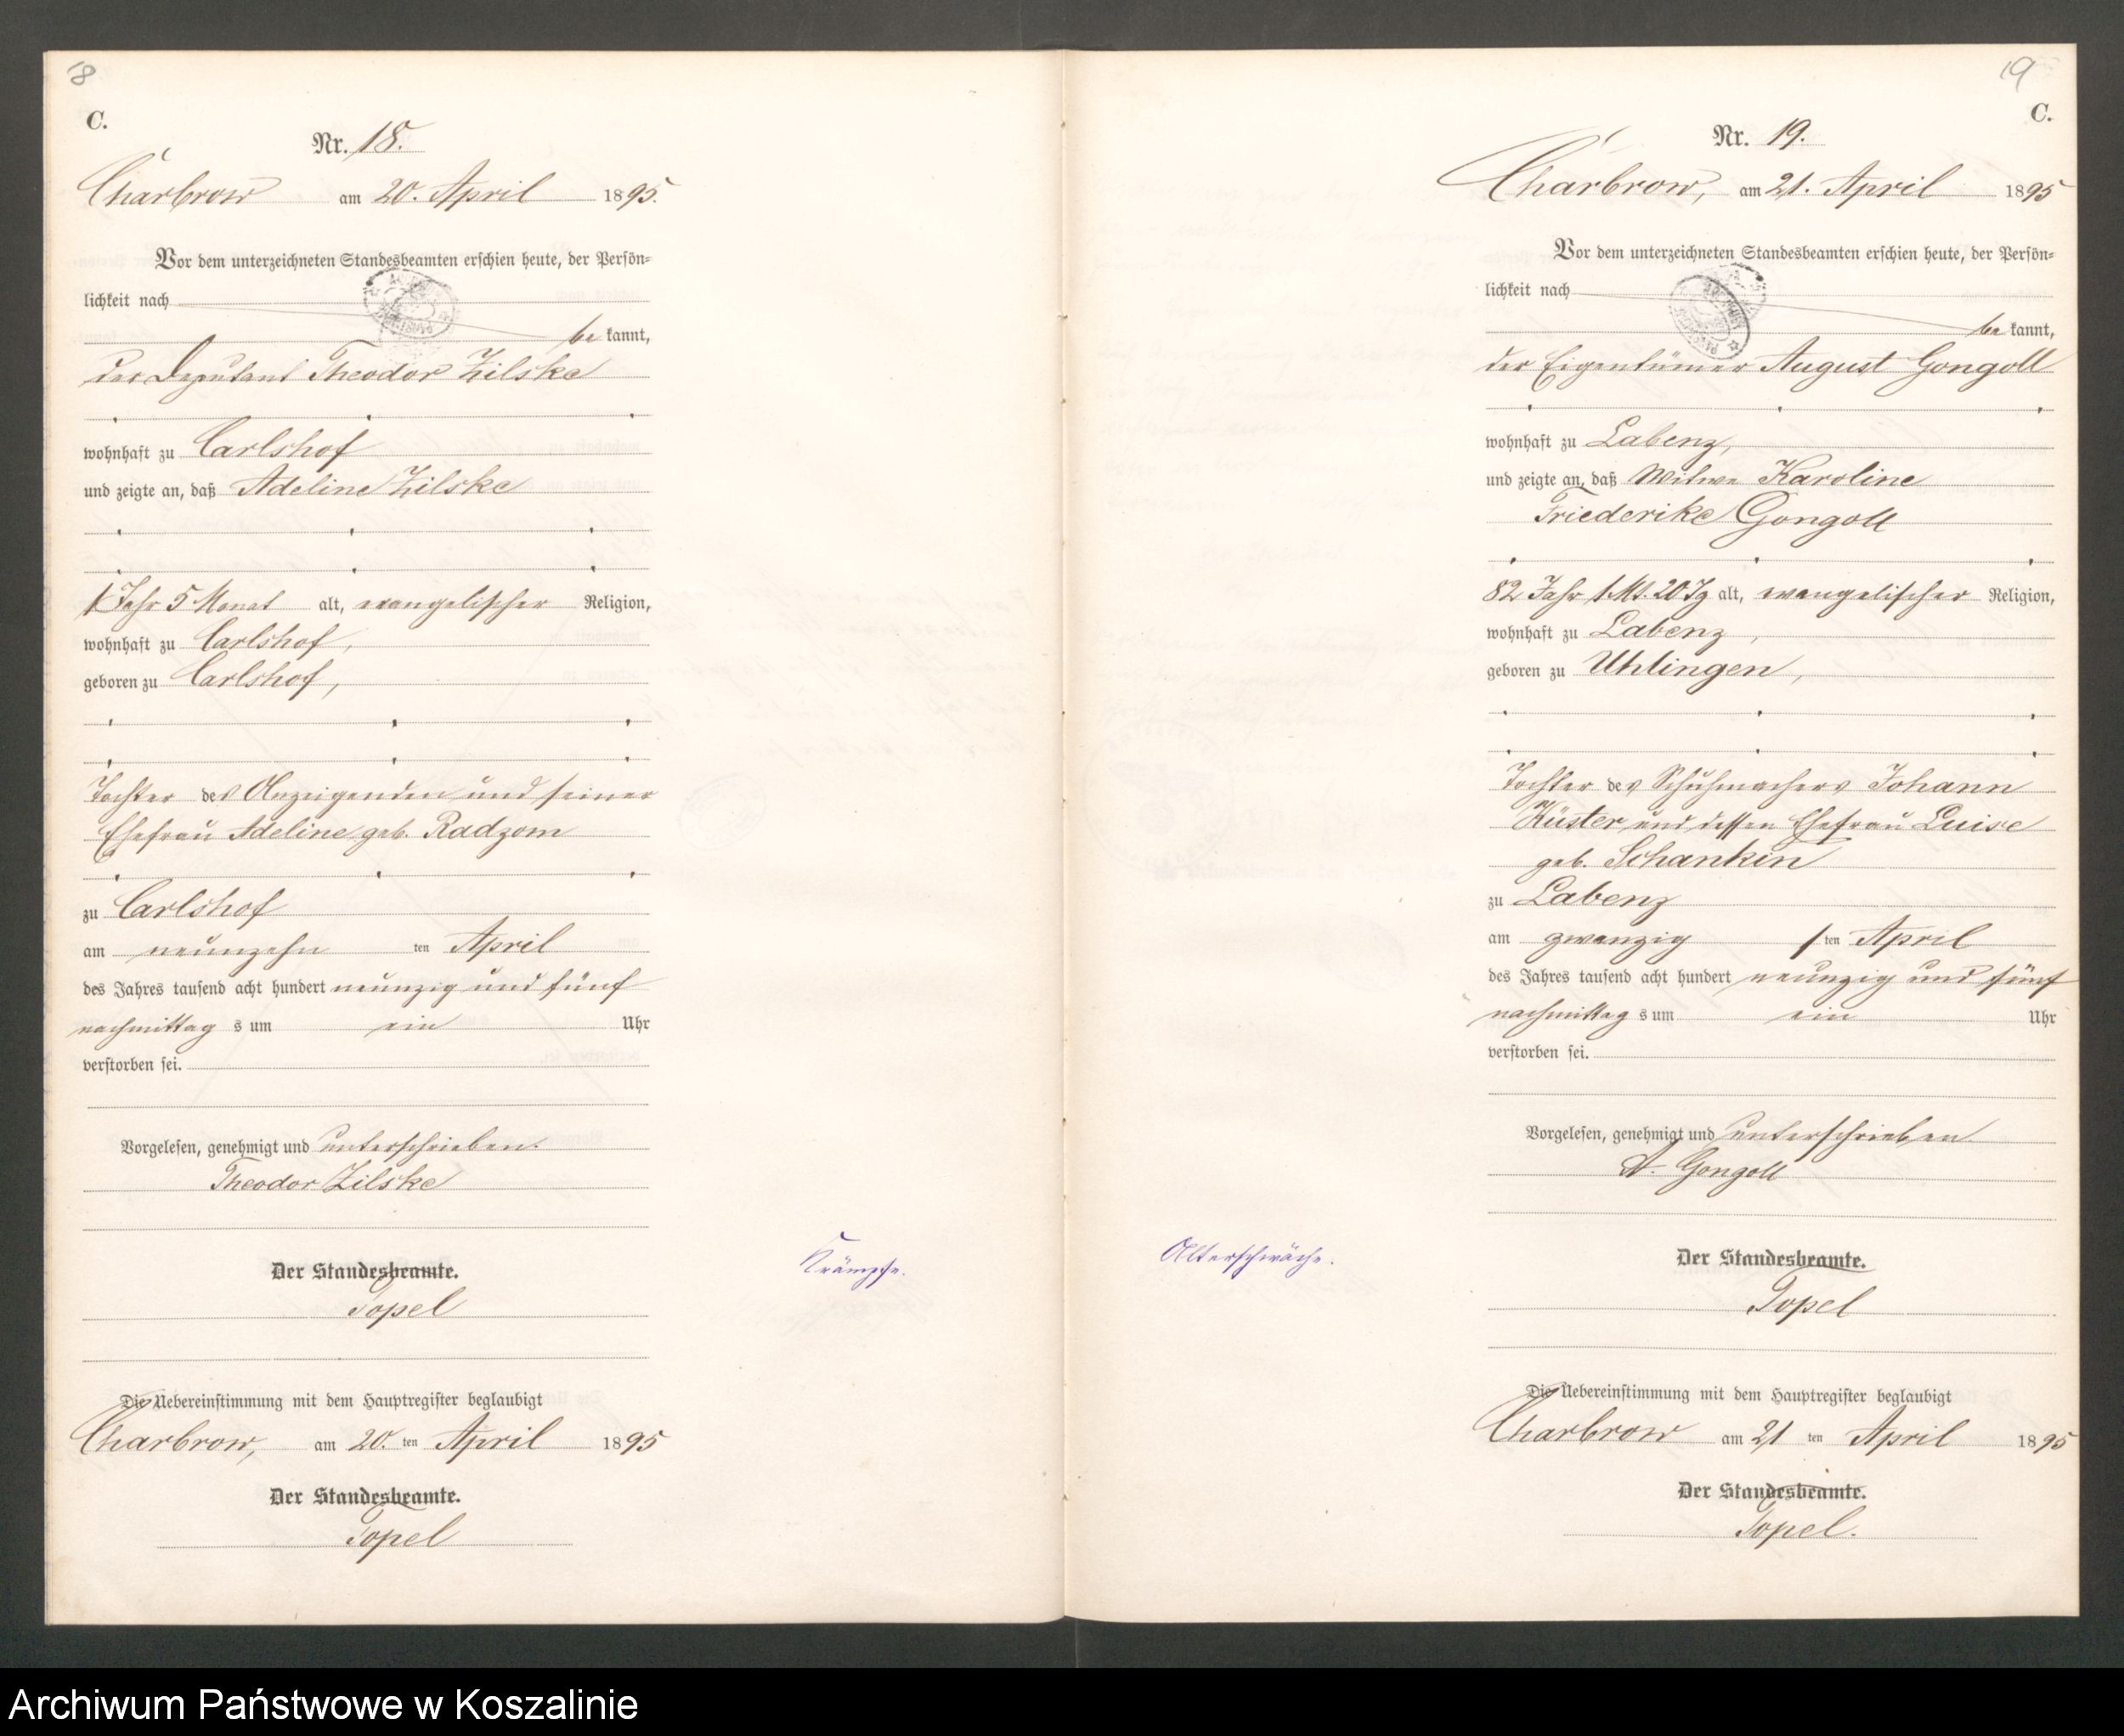 18
C.
Nr. 18.
Charbrow am 20. April 1895.
Vor dem unterzeichneten Standesbeamten erschien heute, der Persön-
lichkeit nach
be kannt,
der Deputant Theodor Zilske
wohnhaft zu Carlshof
und zeigte an, daß Adeline Zilske
1 Jahr 5 Monat alt, evangelischer Religion,
wohnhaft zu Carlshof,
geboren zu Carlshof,
Tochter des Anzeigenden und seiner
Ehefrau Adeline geb. Radzom
zu Carlshof
am neunzehn ten April
des Jahres tausend acht hundert neunzig und fünf
nachmittag s um ein Uhr
verstorben sei.
Vorgelesen, genehmigt und unterschrieben.
Theodor Zilske
Der Standesbeamte.
Topel
Krämpfe.
Die Uebereinstimmung mit dem Hauptregister beglaubigt
Charbrow, am 20. ten April 1895
Der Standesbeamte.
Topel
19
C.
Nr. 19.
Charbrow, am 21. April 1895
Vor dem unterzeichneten Standesbeamten erschien heute, der Persön-
lichkeit nach
be kannt,
der Eigentümer August Gongoll
wohnhaft zu Labenz,
und zeigte an, daß Witwe Karoline
Friederike Gongoll
82 Jahr 1 Mt. 20 Tg alt, evangelischer Religion,
wohnhaft zu Labenz,
geboren zu Uhlingen,
Tochter des Schuhmachers Johann
Küster und dessen Ehefrau Luise
geb. Schankin
zu Labenz
am zwanzig ten April
des Jahres tausend acht hundert neunzig und fünf
nachmittag s um ein Uhr
verstorben sei.
Vorgelesen, genehmigt und unterschrieben
A. Gongoll
Alterschwäche.
Der Standesbeamte.
Topel
Die Uebereinstimmung mit dem Hauptregister beglaubigt
Charbrow am 21 ten April 1895
Der Standesbeamte.
Topel.
Archiwum Państwowe w Koszalinie